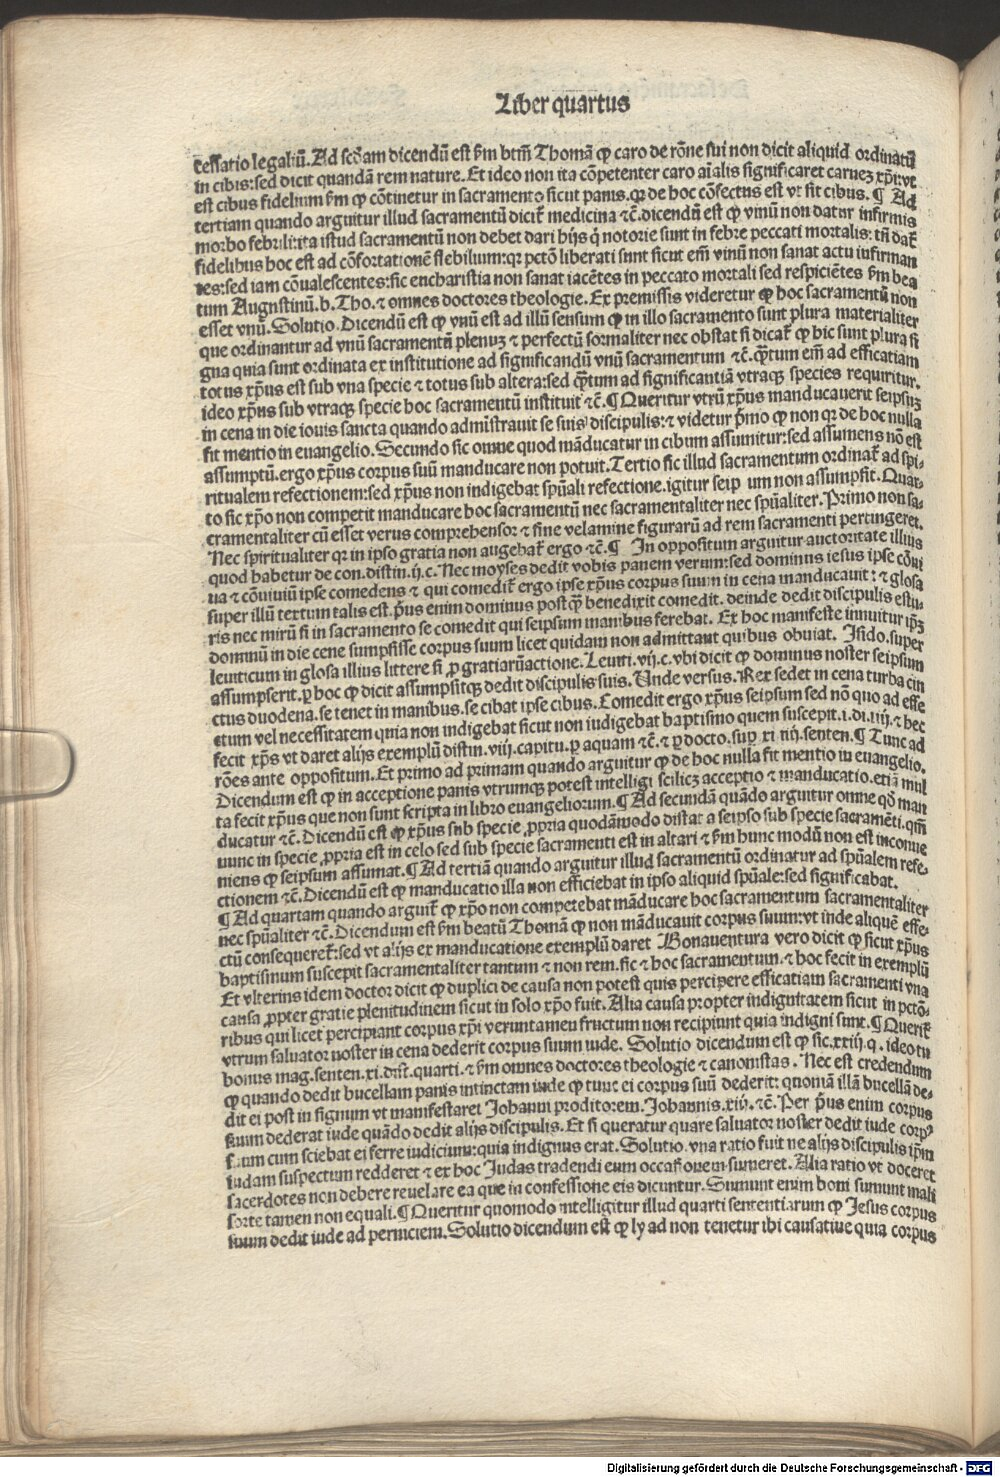 Liber quartus
cessatio legaliū. Ad scd̄am dicendū est s̄m btm̄ Thomā ꝙ caro de rōne sui non dicit aliquid ordinatū
in cibis: sed dicit quandā rem nature. Et ideo non ita cōpetenter caro aīalis significaret carneꝫ xp̄i: vt
est cibus fidelium s̄m ꝙ cōtinetur in sacramento sicut panis. qꝛ de hoc cōfectus est vt sit cibus. ¶ Ad
tertiam quando arguitur illud sacramentū dicit̄ medicina ⁊c̄. dicendū est ꝙ vinū non datur infirmis
morbo febrili: ita istud sacramentū non debet dari hijs q̄ notorie sunt in febre peccati mortalis: tn̄ dat̄
fidelibus hoc est ad cōfortationē flebilium: qꝛ pctō liberati sunt sicut em̄ vinū non sanat actu infirman
tes: sed iam cōualescentes: sic eucharistia non sanat iacētes in peccato mortali sed respiciētes s̄m bea
tum Augustinū. b. Tho. ⁊ omnes doctores theologie. Ex premissis videretur ꝙ hoc sacramentū non
esset vnū. Solutio. Dicendū est ꝙ vnū est ad illū sensum ꝙ in illo sacramento sunt plura materialiter
que ordinantur ad vnū sacramentū plenuꝫ ⁊ perfectū formaliter nec obstat si dicat̄ ꝙ hic sunt plura si
gna quia sunt ordinata ex institutione ad significandū vnū sacramentum ⁊c̄. qꝫtum em̄ ad efficatiam
totus xp̄us est sub vna specie ⁊ totus sub altera: sed qꝫtum ad significantiā vtraqꝫ species requiritur.
ideo xp̄us sub vtraqꝫ specie hoc sacramentū instituit ⁊c̄. ¶ Queritur vtrū xp̄us manducauerit seipsuꝫ
in cena in die iouis sancta quando admistrauit se suis discipulis: ⁊ videtur p̄mo ꝙ non qꝛ de hoc nulla
fit mentio in euangelio. Secundo sic omne quod māducatur in cibum assumitur: sed assumens nō est
assumptū. ergo xp̄us corpus suū manducare non potuit. Tertio sic illud sacramentum ordinat̄ ad spi-
ritualem refectionem: sed xp̄us non indigebat spūali refectione. igitur seip um non assumpsit. Quar-
to sic xp̄o non competit manducare hoc sacramentū nec sacramentaliter nec spūaliter. Primo non sa-
cramentaliter cū esset verus comprehensor ⁊ sine velamine figurarū ad rem sacramenti pertingeret.
Nec spiritualiter qꝛ in ipso gratia non augebat̄ ergo ⁊c̄. ¶ In oppositum arguitur auctoritate illius
quod habetur de con. distin. ij. c. Nec moyses dedit vobis panem verum: sed dominus iesus ipse cōui
ua ⁊ cōuiuiū ipse comedens ⁊ qui comedit̄ ergo ipse xp̄us corpus suum in cena manducauit: ⁊ glosa
super illū textum talis est. p̄us enim dominus postqꝫ benedixit comedit. deinde dedit discipulis estu-
ris nec mirū si in sacramento se comedit qui seipsum manibus ferebat. Ex hoc manifeste innuitur ip̄ꝫ
dominū in die cene sumpsisse corpus suum licet quidam non admittant quibus obuiat. Isido. super
leuiticum in glosa illius littere si ꝓ gratiarūactione. Leuiti. vij. c. vbi dicit ꝙ dominus noster seipsum
assumpserit. ꝑ hoc ꝙ dicit assumpsitqꝫ dedit discipulis suis. Unde versus. Rex sedet in cena turba cin
ctus duodena. se tenet in manibus. se cibat ipse cibus. Comedit ergo xp̄us seipsum sed nō quo ad effe
ctum vel necessitatem quia non indigebat sicut non indigebat baptismo quem suscepit. i. di. iiij. ⁊ hec
fecit xp̄s vt daret alijs exemplū distin. viij. capitu. ꝑ aquam ⁊c̄. ⁊ ꝑ docto. suꝑ xi iiij. senten. ¶ Tunc ad
rōes ante oppositum. Et primo ad primam quando arguitur ꝙ de hoc nulla fit mentio in euangelio.
Dicendum est ꝙ in acceptione panis vtrumqꝫ potest intelligi scilicꝫ acceptio ⁊ manducatio. etiā mul
ta fecit xp̄us que non sunt scripta in libro euangeliorum. ¶ Ad secundā quādo arguitur omne qd̄ man
ducatur ⁊c̄. Dicendū est ꝙ xp̄us sub specie ꝓpria quodāmodo distat a seipso sub specie sacramēti. qm̄
nunc in specie ꝓpria est in celo sed sub specie sacramenti est in altari ⁊ s̄m hunc modū non est inconue
niens ꝙ seipsum assumat. ¶ Ad tertiā quando arguitur illud sacramentū ordinatur ad spūalem refe-
ctionem ⁊c̄. Dicendū est ꝙ manducatio illa non efficiebat in ipso aliquid spūale: sed significabat.
¶ Ad quartam quando arguit̄ ꝙ xp̄o non competebat māducare hoc sacramentum sacramentaliter
nec spūaliter ⁊c̄. Dicendum est s̄m beatū Thomā ꝙ non māducauit corpus suum: vt inde aliquē effe-
ctū consequeret̄: sed vt alijs ex manducatione exemplū daret Bonauentura vero dicit ꝙ sicut xp̄us
baptismum suscepit sacramentaliter tantum ⁊ non rem. sic ⁊ hoc sacramentum. ⁊ hoc fecit in exemplū
Et vlterius idem doctor dicit ꝙ duplici de causa non potest quis percipere efficatiam sacramenti vna
causa ꝓpter gratie plenitudinem sicut in solo xp̄o fuit. Alia causa propter indignitatem sicut in pctō-
ribus qui licet percipiant corpus xp̄i veruntameu fructum non recipiunt quia indigni sunt. ¶ Querit̄
vtrum saluator noster in cena dederit corpus suum iude. Solutio dicendum est ꝙ sic. xxiij. q. ideo tu
bonus mag. senten. xi. dist̄. quarti. ⁊ s̄m omnes doctores theologie ⁊ canonistas. Nec est credendum
ꝙ quando dedit bucellam panis intinctam iude ꝙ tunc ei corpus suū dederit: quoniā illā bucellā de-
dit ei post in signum vt manifestaret Johanni proditorem. Johannis. xiij. ⁊c̄. Per p̄us enim corpus
suum dederat iude quādo dedit alijs discipulis. Et si queratur quare saluator noster dedit iude corpꝰ
suum cum sciebat ei ferre iudicium: quia indignus erat. Solutio. vna ratio fuit ne alijs discipulis ip̄m
iudam suspectum redderet ⁊ ex hoc Judas tradendi eum occasionem sumeret. Alia ratio vt doceret
sacerdotes non debere reuelare ea que in confessione eis dicuntur. Sumunt enim boni sumunt mali
sorte tamen non equali. ¶ Queritur quomodo intelligitur illud quarti sententiarum ꝙ Jesus corpus
suum dedit iude ad perniciem. Solutio dicendum est ꝙ ly ad non tenetur ibi causatiue quia corpus
Digitalisierung gefördert durch die Deutsche Forschungsgemeinschaft - DFG